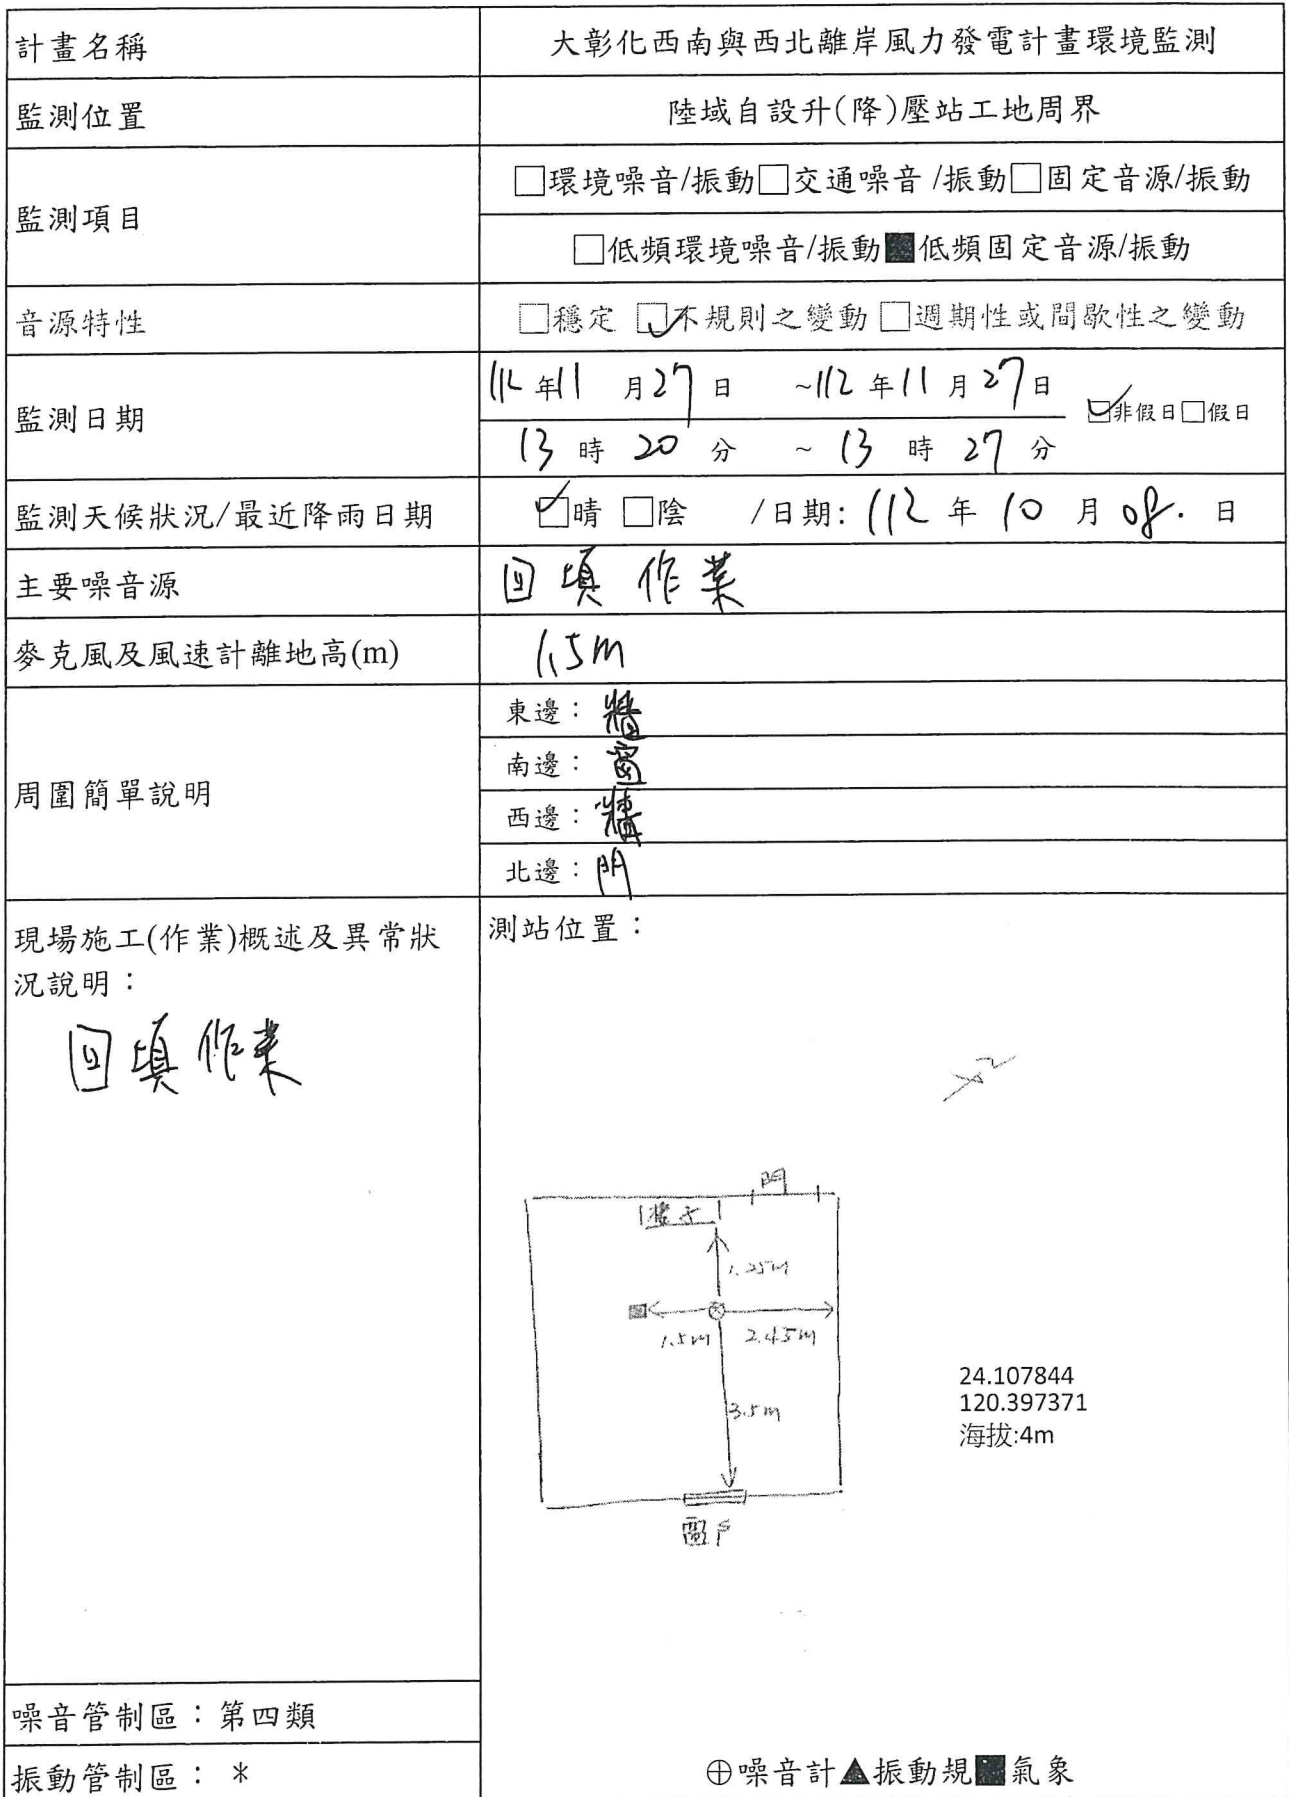 計畫名稱 大彰化西南與西北離岸風力發電計畫環境監測
監測位置 陸域自設升(降)壓站工地周界
監測項目 □環境噪音/振動□交通噪音/振動□固定音源/振動
□低頻環境噪音/振動■低頻固定音源/振動
音源特性 □穩定 ☑不規則之變動 □週期性或間歇性之變動
監測日期 112年11月27日 ~112年11月27日 ☑非假日□假日
13時20分 ~13時27分
監測天候狀況/最近降雨日期 ☑晴 □陰 /日期: 112年10月08.日
主要噪音源 回填作業
麥克風及風速計離地高(m) 1.5m
周圍簡單說明 東邊：牆
南邊：窗
西邊：牆
北邊：門
現場施工(作業)概述及異常狀
況說明：
回填作業
測站位置：
門
1.25m
1.5m 2.45m
3.5m
窗戶
24.107844
120.397371
海拔:4m
噪音管制區：第四類
振動管制區：*
⊕噪音計▲振動規■氣象